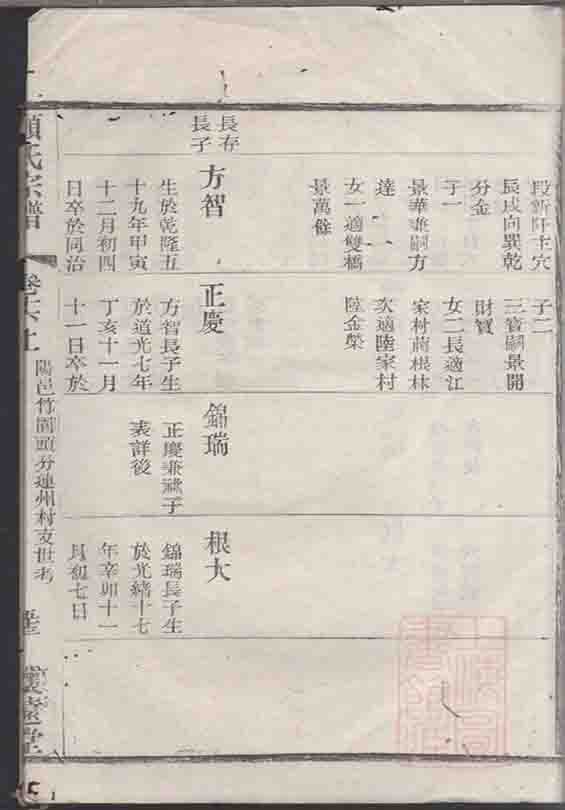 長存
長子
段新阡主穴
辰戌向巽乾
分金
子一
景華兼嗣方
達
女一適雙橋
景萬餘
方智
生於乾隆五
十九年甲寅
十二月初四
日卒於同治
子二
三寶嗣景開
財寶
女二長適江
家村蔣根林
次適陸家村
陸金榮
正慶
方智長子生
於道光七年
丁亥十一月
十一日卒於
錦瑞
正慶兼祧子
表詳後
根大
錦瑞長子生
於光緒十七
年辛卯十一
月初七日
氏宗譜
卷十六上
陽邑竹園頭分蓮州村支世考